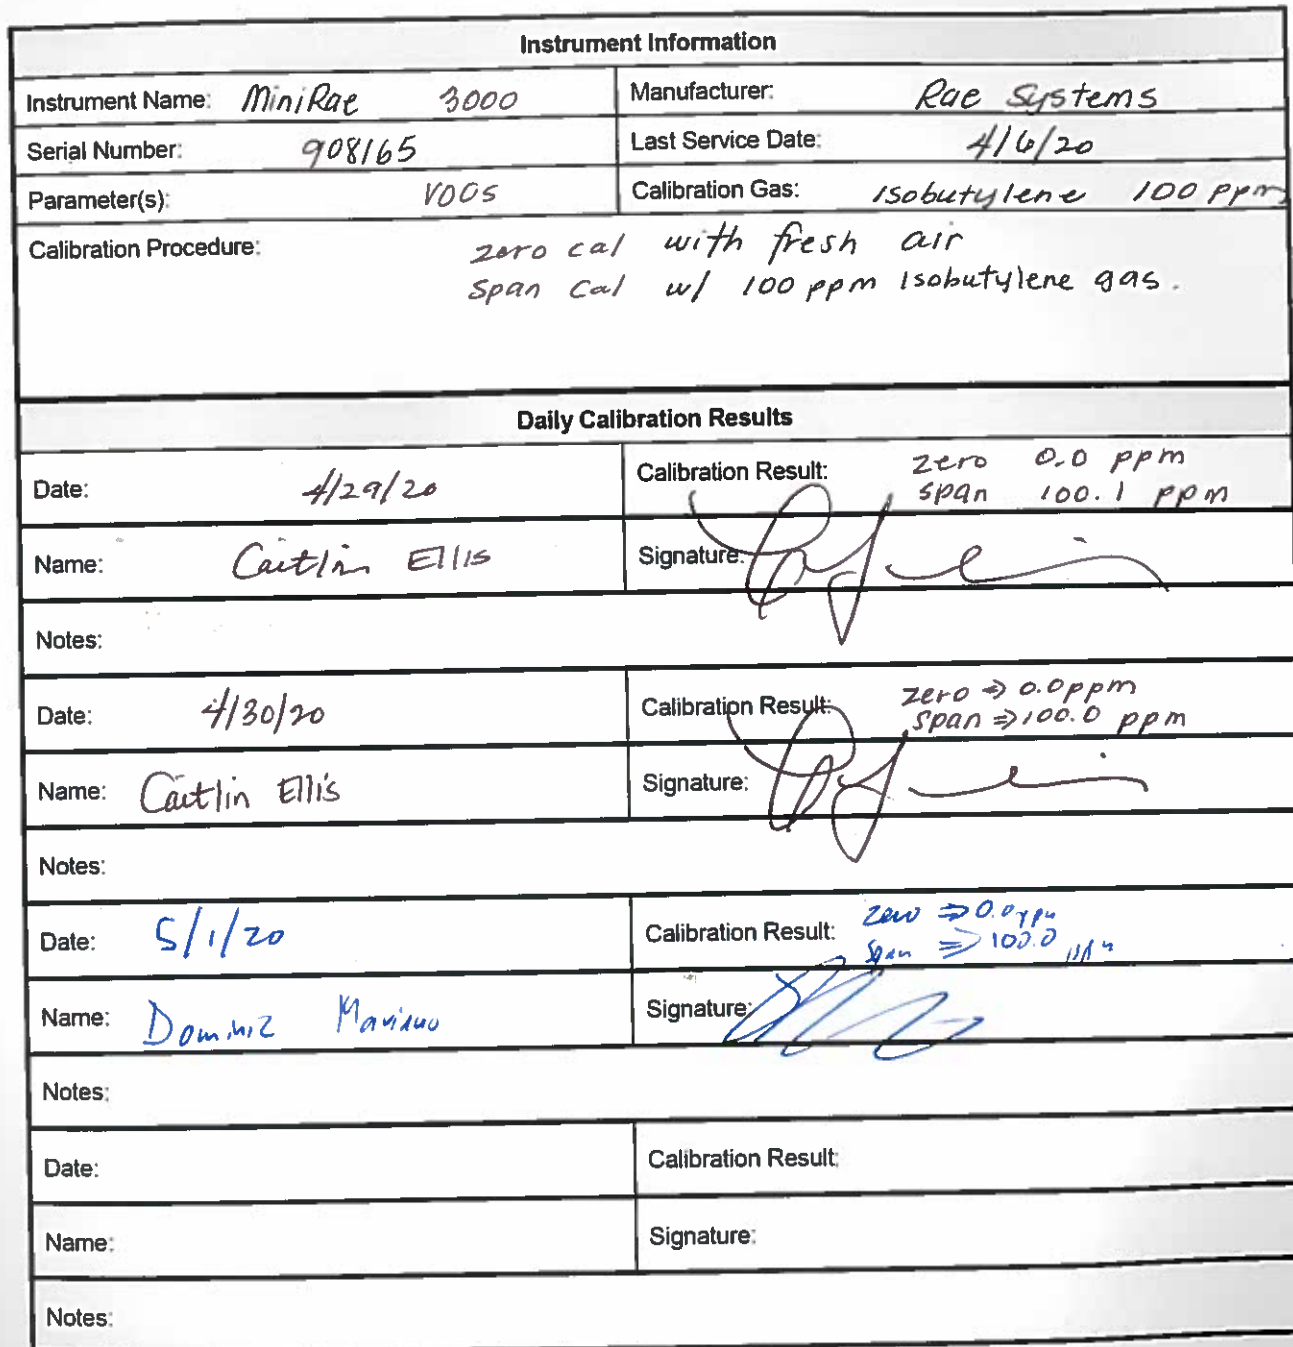 Instrument Information
Instrument Name: MiniRae 3000
Manufacturer: Rae Systems
Serial Number: 908165
Last Service Date: 4/6/20
Parameter(s): VOCs
Calibration Gas: Isobutylene 100 ppm
Calibration Procedure: zero cal with fresh air
span cal w/ 100 ppm Isobutylene gas.
Daily Calibration Results
Date: 4/29/20
Calibration Result: zero 0.0 ppm
span 100.1 ppm
Name: Caitlin Ellis
Signature:
Notes:
Date: 4/30/20
Calibration Result: zero => 0.0ppm
span => 100.0 ppm
Name: Caitlin Ellis
Signature:
Notes:
Date: 5/1/20
Calibration Result: zero => 0.0 ppm
span => 100.0 ppm
Name:
Signature:
Notes:
Date:
Calibration Result:
Name:
Signature:
Notes: